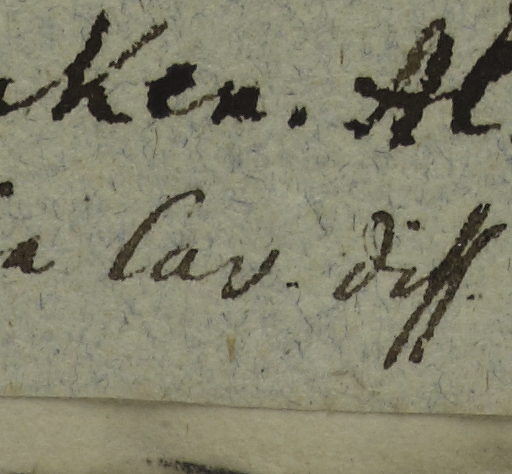 ken. Al
a Cav. diff.